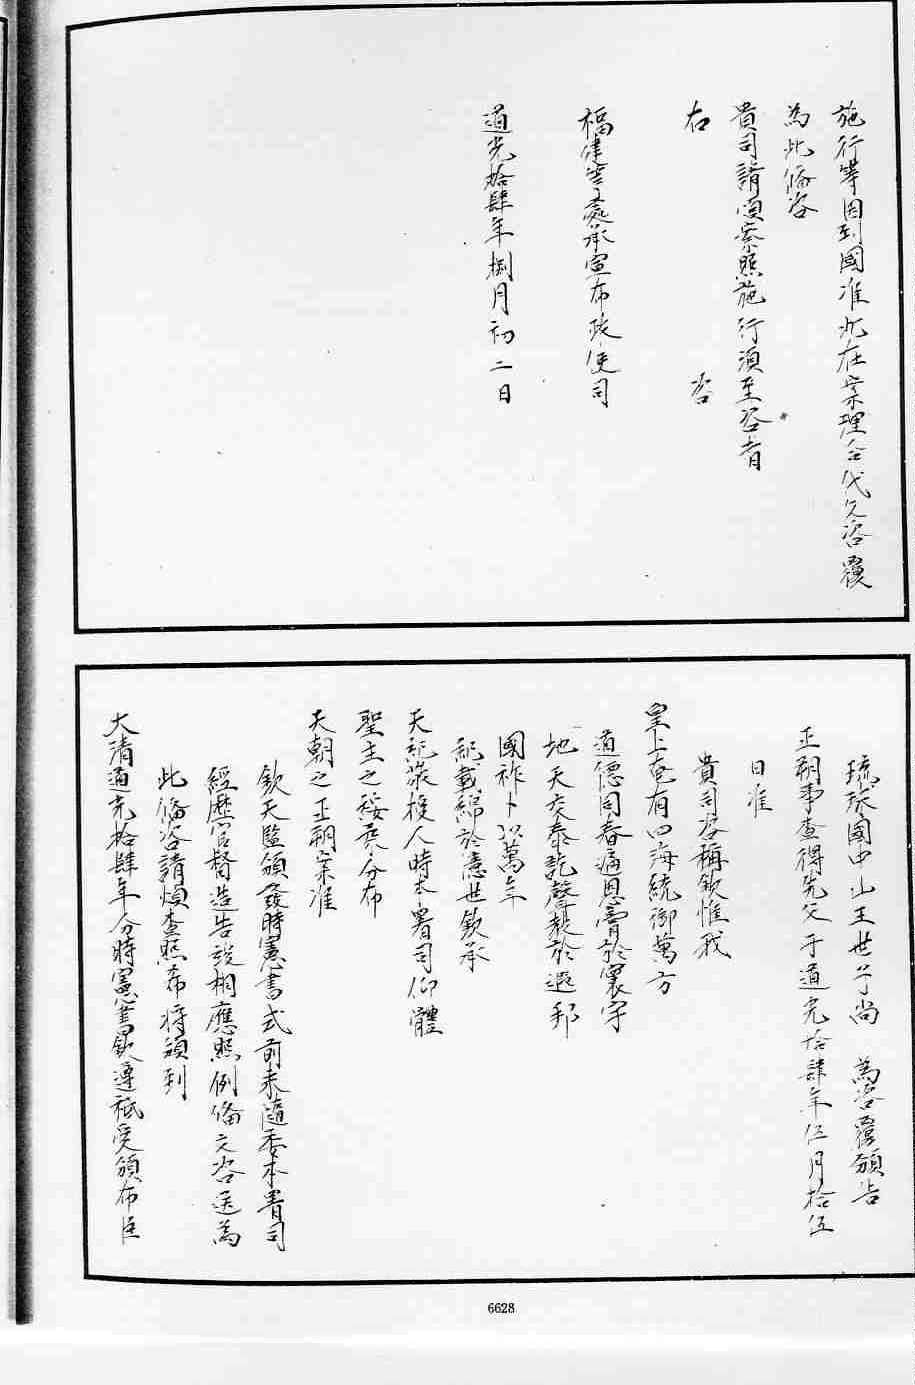 施行等因到國准此在案理合代久咨覆
為此備咨
貴司請煩察照施行須至咨者
右 咨
福建等處承宣布政使司
道光拾肆年捌月初二日
琉球國中山王世子尚 為咨覆頒告
正朔事查得先父于道光拾肆年伍月拾伍
日准
貴司咨稱欽惟我
皇上奄有四海統御萬方
道德同春痛恩膏於寰宇
地天交泰訖聲教於遐邦
國祚卜以萬年
紀載綿於憲世欽承
天紀浚授人時本署司仰體
聖主之綏來分布
天朝之正朔案准
欽天監頒發時憲書式前來隨委本署司
經歷官督造告竣相應照例備文咨送為
此備咨請煩查照希將頒到
大清道光拾肆年分時憲書欽遵祗受頒布臣
6628